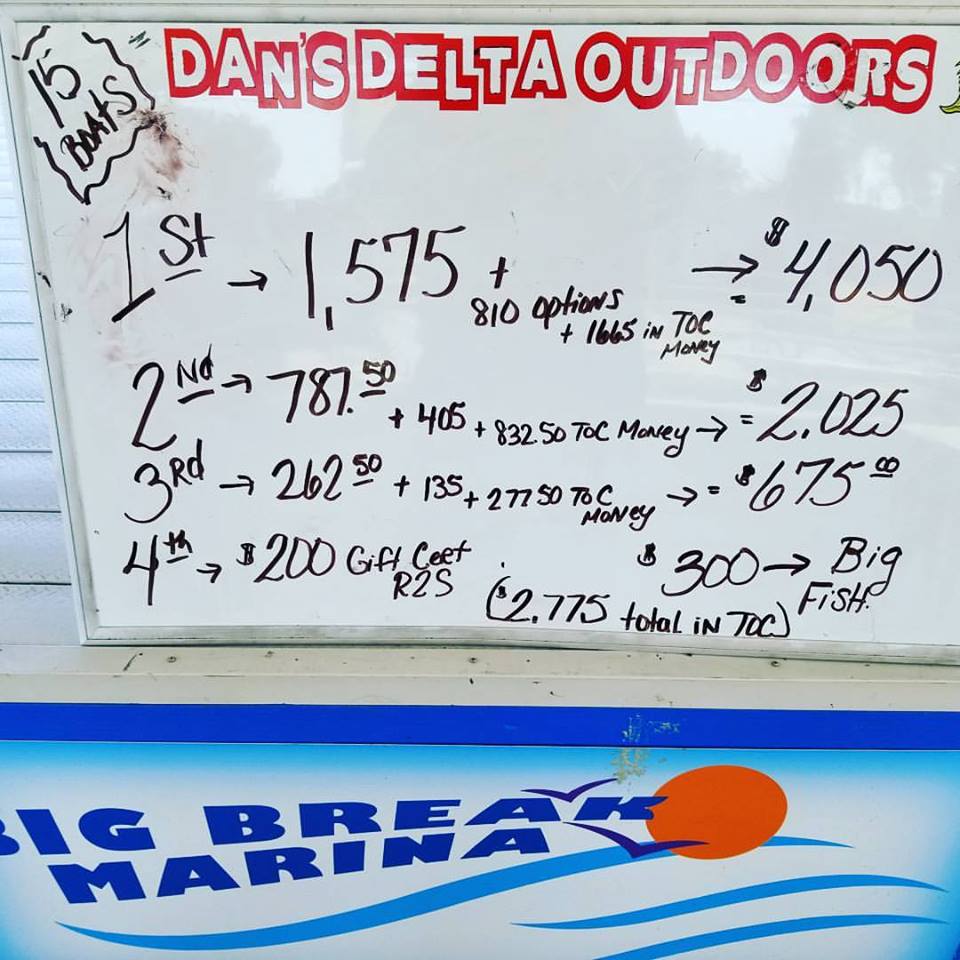 15
BOATS
DAN'S DELTA OUTDOORS
1st → 1,575 + 810 options + 1665 in TOC Money → = $4,050
2nd → 787.50 + 405 + 832.50 TOC Money → = $2,025
3rd → 262 50 + 135 + 277 50 TOC Money → = $675 00
4th → $200 Gift Cert R2S
$300 → Big Fish.
($2,775 total in TOC)
BIG BREAK
MARINA